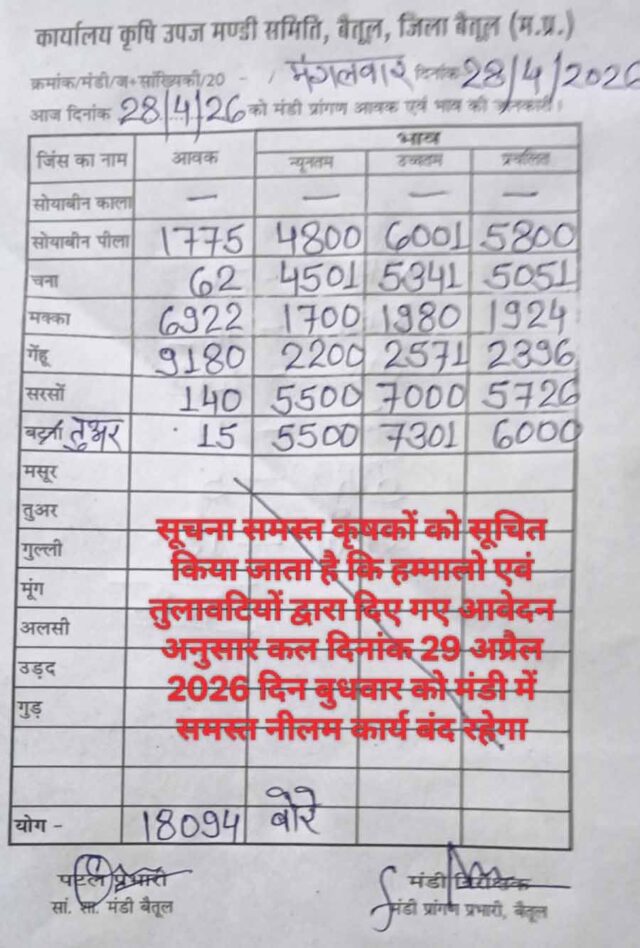 कार्यालय कृषि उपज मण्डी समिति, बैतूल, जिला बैतूल (म.प्र.)
क्रमांक/मंडी/ज+सांख्यिकी/20 - / मंगलवार दिनांक 28/4/2026
आज दिनांक 28/4/26 को मंडी प्रांगण आवक एवं भाव की जानकारी।
जिंस का नाम आवक भाव
न्यूनतम उच्चतम प्रचलित
सोयाबीन काला — — — —
सोयाबीन पीला 1775 4800 6001 5800
चना 62 4501 5341 5051
मक्का 6922 1700 1980 1924
गेंहू 9180 2200 2571 2396
सरसों 140 5500 7000 5726
तुअर 15 5500 7301 6000
मसूर
तुअर
गुल्ली
मूंग
अलसी
उड़द
गुड़
सूचना समस्त कृषकों को सूचित
किया जाता है कि हम्मालो एवं
तुलावटियों द्वारा दिए गए आवेदन
अनुसार कल दिनांक 29 अप्रैल
2026 दिन बुधवार को मंडी में
समस्त नीलाम कार्य बंद रहेगा
योग - 18094 बोरे
प्रभारी मंडी निरीक्षक
सां. सा. मंडी बैतूल मंडी प्रांगण प्रभारी, बैतूल